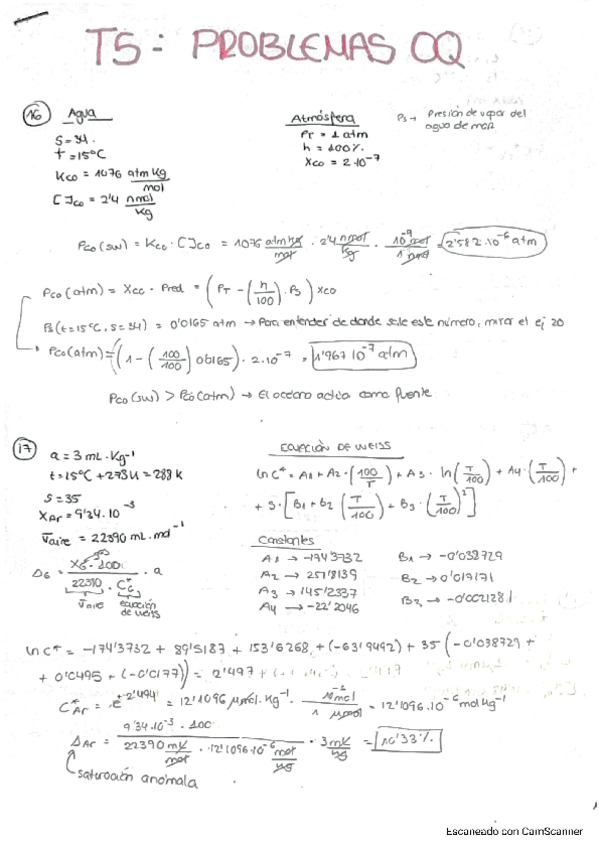 T5: PROBLEMAS OQ
16 Agua
S = 34.
t = 15°C
Kco = 1076 atm Kg / mol
[ ]co = 2'4 nmol / Kg
Atmósfera
PT = 1 atm
h = 100%
Xco = 2·10^-7
Ps → Presión de vapor del
agua de mar
Pco (sw) = Kco · [ ]co = 1076 atm Kg / mol · 2'4 nmol / Kg · 10^-9 mol / 1 nmol = 2'582·10^-6 atm
Pco (atm) = Xco · Pred = (PT - (h/100) · Ps) Xco
Ps (t=15°C, S=34) = 0'0165 atm → Para entender de donde sale este número, mirar el ej 20
Pco (atm) = (1 - (100/100) 0'0165) · 2·10^-7 = 1'967 10^-7 atm
Pco (sw) > Pco (atm) → El océano actúa como fuente
17 a = 3 mL·Kg^-1
t = 15°C + 273K = 288 K
S = 35
XAr = 9'34·10^-3
Vaire = 22390 mL·mol^-1
ΔG = XG·100 / 22390 · C*G · a
Vaire ecuación de Weiss
ECUACIÓN DE WEISS
ln C* = A1 + A2 · (100/T) + A3 · ln(T/100) + A4 · (T/100) +
+ S · [B1 + B2 (T/100) + B3 · (T/100)^2]
Constantes
A1 → -174'3732
A2 → 251'8139
A3 → 145'2337
A4 → -22'2046
B1 → -0'038729
B2 → 0'017171
B3 → -0'002128
ln C* = -174'3732 + 89'5187 + 153'6268 + (-63'9492) + 35 (-0'038729 +
+ 0'0495 + (-0'0177)) = 2'497
C*Ar = e^2'494 = 12'1096 μmol·Kg^-1 · mol / 1 μmol = 12'1096·10^-6 mol Kg^-1
ΔAr = 9'34·10^-3 · 100 / 22390 mL/mol · 12'1096·10^-6 mol/Kg · 3 mL/Kg = 10'33%
saturación anómala
Escaneado con CamScanner